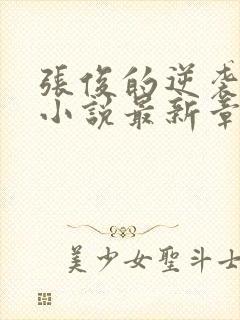 張俊的逆襲
小說最新章
美少女聖斗士